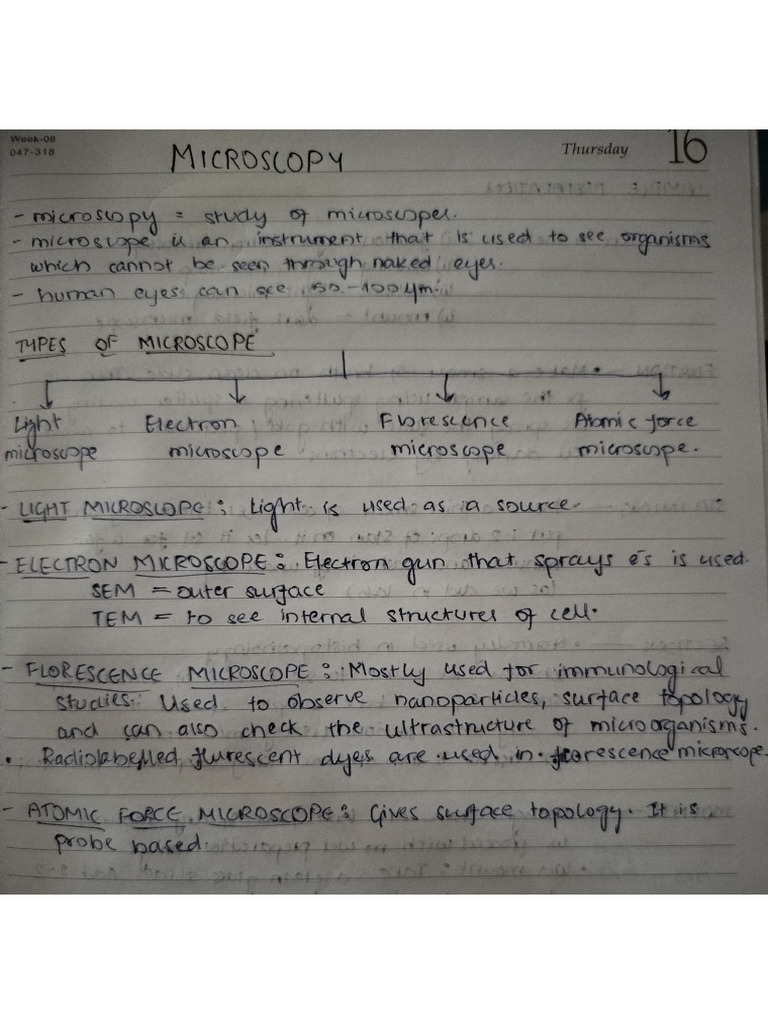 Week-08
047-318
MICROSCOPY
Thursday 16
- microscopy = study of microscopes.
- microscope is an instrument that is used to see organisms
which cannot be seen through naked eyes.
- human eyes can see 50-100 µm.
TYPES OF MICROSCOPE
Light Electron Florescence Atomic force
microscope microscope microscope microscope.
- LIGHT MICROSCOPE : Light is used as a source.
- ELECTRON MICROSCOPE : Electron gun that sprays e⁻s is used.
SEM = outer surface
TEM = to see internal structures of cell.
- FLORESCENCE MICROSCOPE : Mostly used for immunological
studies. Used to observe nanoparticles, surface topology
and can also check the ultrastructure of microorganisms.
• Radiolabelled flurescent dyes are used in florescence microscope.
- ATOMIC FORCE MICROSCOPE : Gives surface topology. It is
probe based.